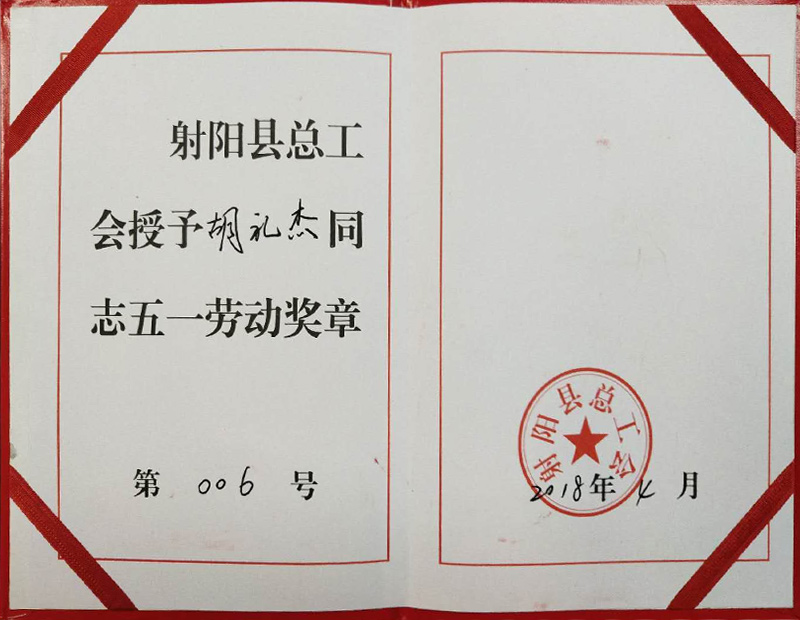 射阳县总工
会授予胡礼杰同
志五一劳动奖章
第 006 号
射阳县总工会
2018年4月